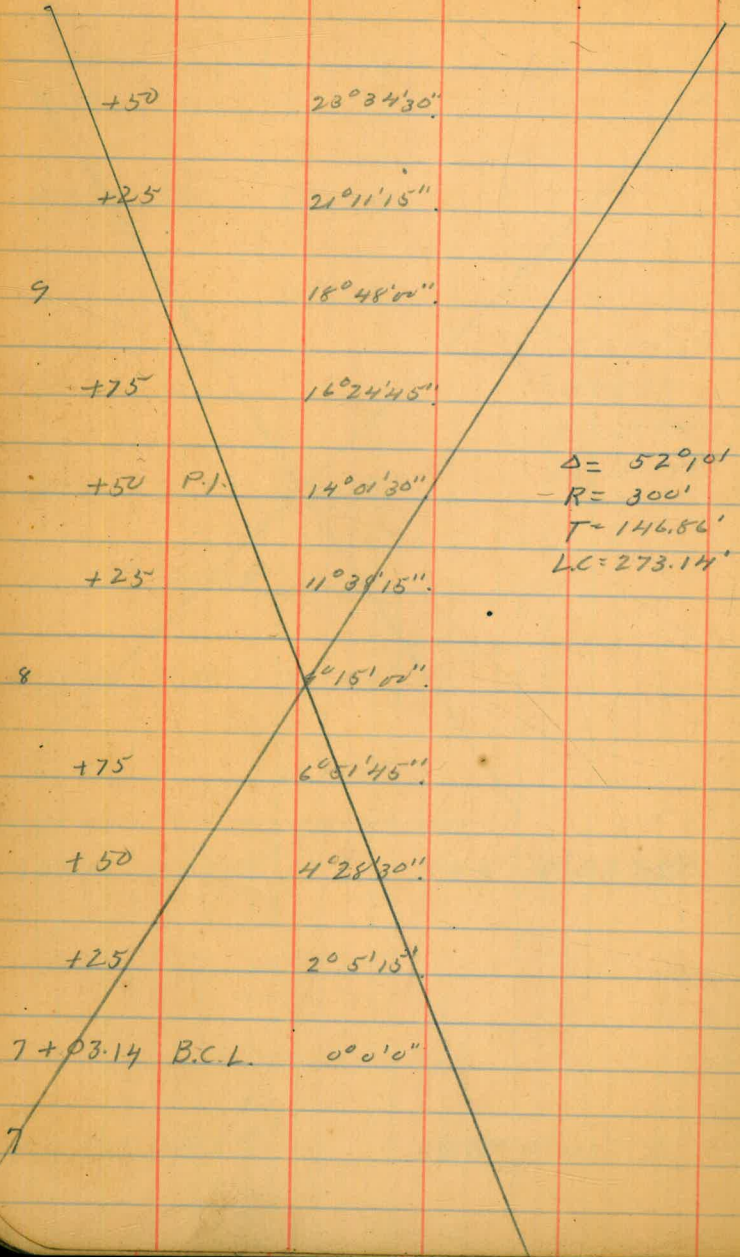 +50 23°34'30"
+25 21°11'15"
9 18°48'00"
+75 16°24'45"
+50 P.I. 14°01'30"
+25 11°38'15"
8 9°15'00"
+75 6°51'45"
+50 4°28'30"
+25 2°5'15"
7+03.14 B.C.L. 0°0'0"
7
Δ= 52°10'
R= 300'
T= 146.86'
L.C= 273.14'